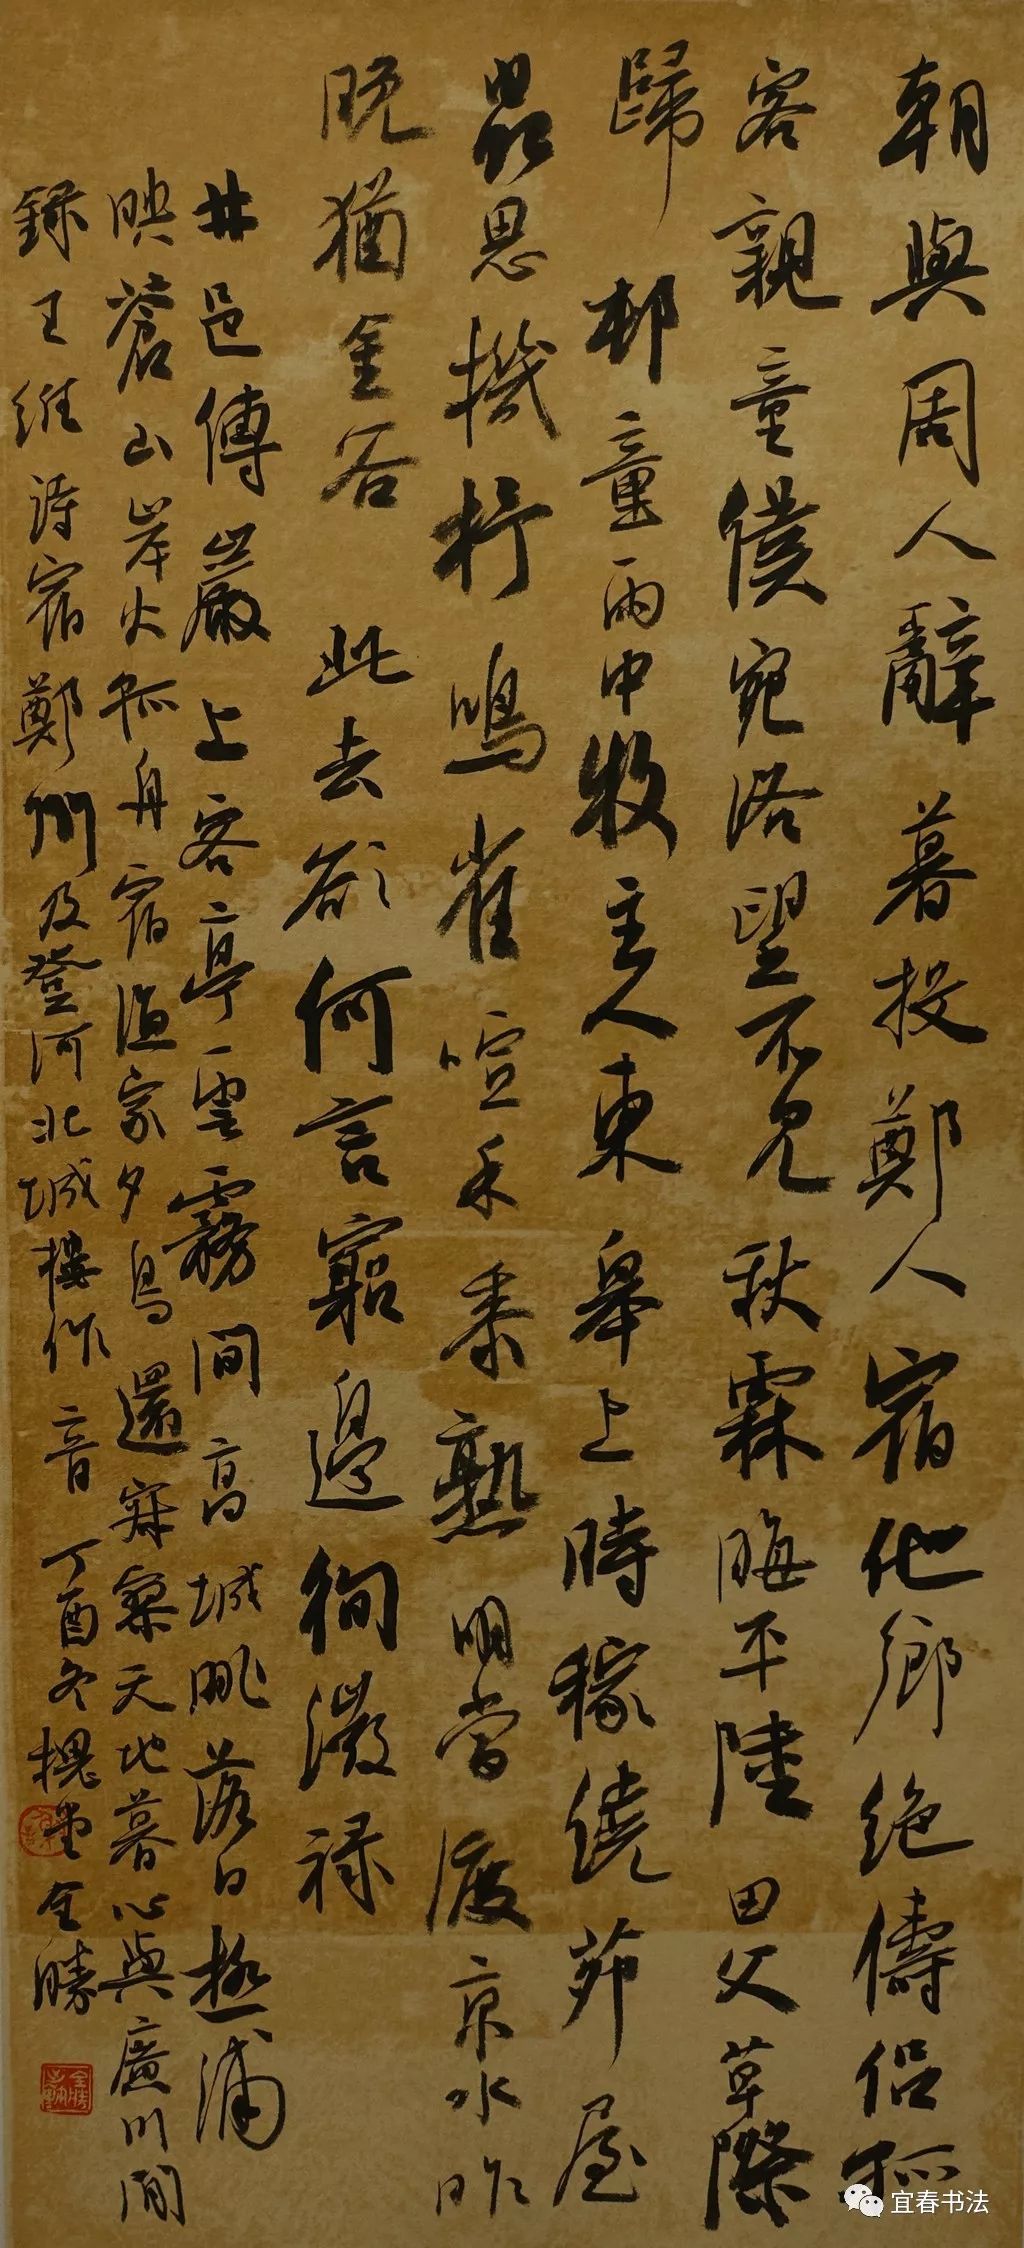 朝與周人辭暮投鄭人宿他鄉絕儔侶孤
客親童僕宛洛望不見秋霖晦平陸田父草際
歸村童雨中牧主人東皋上時稼繞茅屋
蟲思機杼鳴雀喧禾黍熟明當渡京水昨
晚猶金谷此去欲何言窮邊徇微祿
井邑傅巖上客亭雲霧間高城眺落日極浦
映蒼山岸火孤舟宿漁家夕鳥還寂寥天地暮心與廣川閒
錄王維詩宿鄭州及登河北城樓作音丁酉冬槐堂全勝
宜春书法